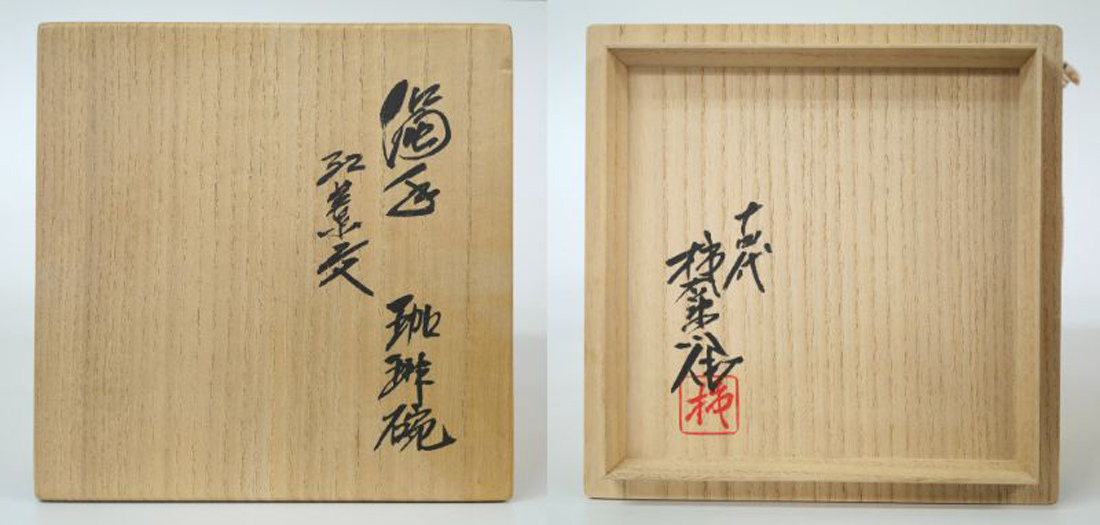 濁手
紅葉文
珈琲碗
十四代
柿右衛門
柿